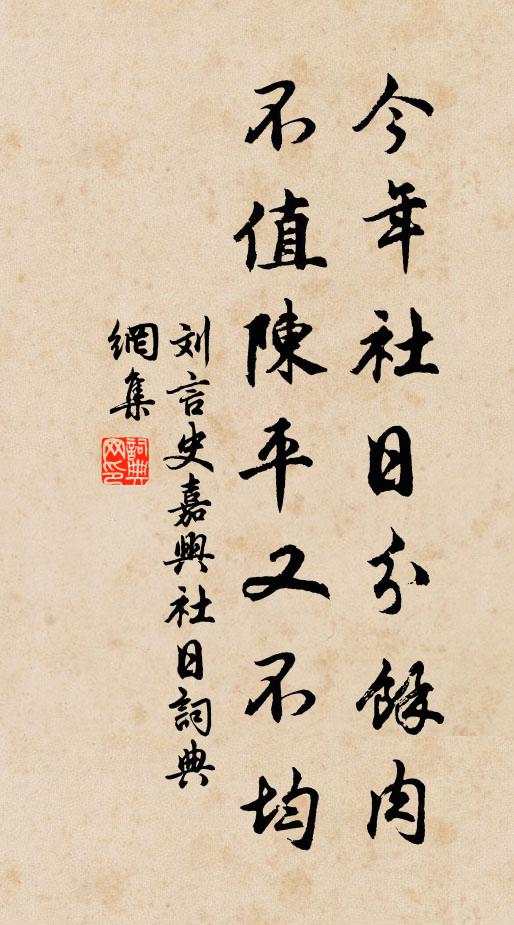 今年社日分餘肉
不值陳平又不均
刘言史嘉興社日詞典
網集
詞典
网印